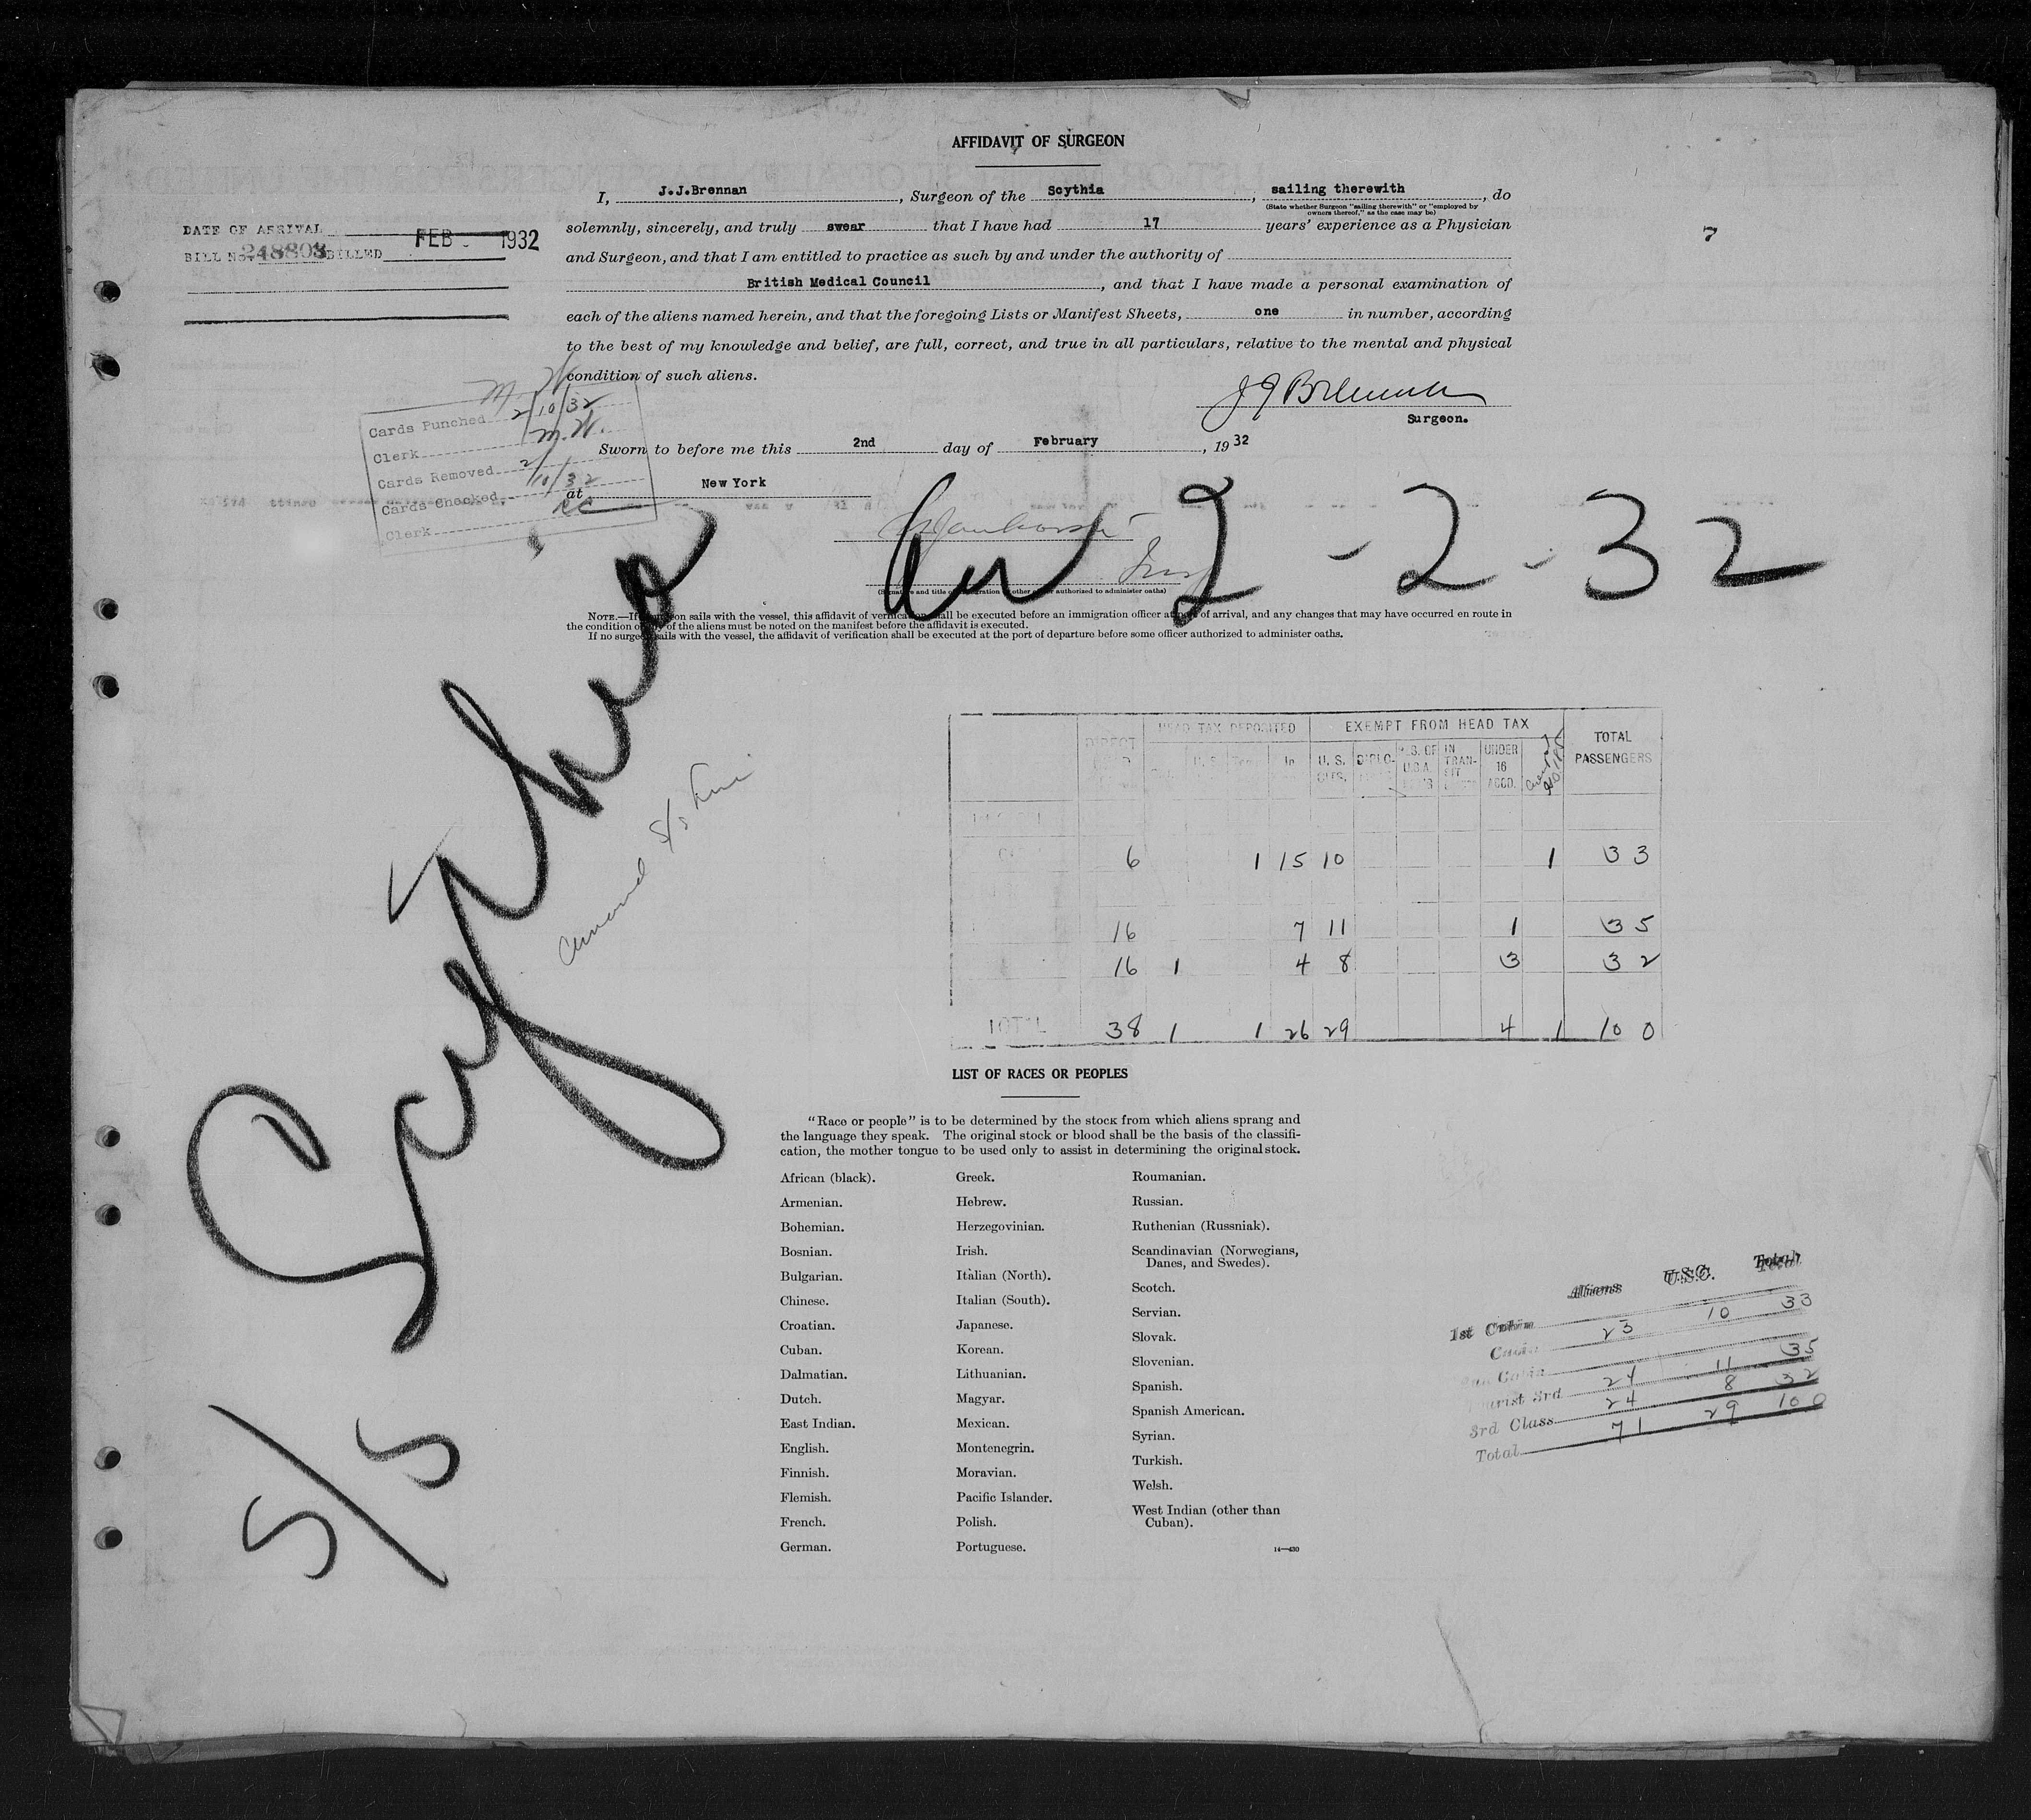 AFFIDAVIT OF SURGEON
I, J.J.Brennan, Surgeon of the Scythia, sailing therewith, do
(State whether Surgeon "sailing therewith" or "employed by
owners thereof," as the case may be)
solemnly, sincerely, and truly swear that I have had 17 years' experience as a Physician
and Surgeon, and that I am entitled to practice as such by and under the authority of
British Medical Council, and that I have made a personal examination of
each of the aliens named herein, and that the foregoing Lists or Manifest Sheets, one in number, according
to the best of my knowledge and belief, are full, correct, and true in all particulars, relative to the mental and physical
condition of such aliens.
DATE OF ARRIVAL FEB 1932
BILL No. 248808 BILLED
7
J J Brennan
Surgeon.
Cards Punched 2/10/32
Clerk M.W.
Cards Removed
Cards Checked 2/10/32
Clerk
Sworn to before me this 2nd day of February, 1932
at New York
Arr 2-2-32
Insp
NOTE.—If surgeon sails with the vessel, this affidavit of verification shall be executed before an immigration officer at port of arrival, and any changes that may have occurred en route in
the condition of any of the aliens must be noted on the manifest before the affidavit is executed.
If no surgeon sails with the vessel, the affidavit of verification shall be executed at the port of departure before some officer authorized to administer oaths.
S/S Scythia
Cunard S/S Line
DIRECT HEAD TAX DEPOSITED EXEMPT FROM HEAD TAX TOTAL PASSENGERS
U. S. CITS. DIPLO- RES. OF U.S.A. IN TRAN-SIT UNDER 16 ACCD.
6 1 15 10 1 33
16 7 11 1 35
16 1 4 8 3 32
TOTAL 38 1 1 26 29 4 1 100
LIST OF RACES OR PEOPLES
"Race or people" is to be determined by the stock from which aliens sprang and
the language they speak. The original stock or blood shall be the basis of the classifi-
cation, the mother tongue to be used only to assist in determining the original stock.
African (black).
Armenian.
Bohemian.
Bosnian.
Bulgarian.
Chinese.
Croatian.
Cuban.
Dalmatian.
Dutch.
East Indian.
English.
Finnish.
Flemish.
French.
German.
Greek.
Hebrew.
Herzegovinian.
Irish.
Italian (North).
Italian (South).
Japanese.
Korean.
Lithuanian.
Magyar.
Mexican.
Montenegrin.
Moravian.
Pacific Islander.
Polish.
Portuguese.
Roumanian.
Russian.
Ruthenian (Russniak).
Scandinavian (Norwegians,
Danes, and Swedes).
Scotch.
Servian.
Slovak.
Slovenian.
Spanish.
Spanish American.
Syrian.
Turkish.
Welsh.
West Indian (other than
Cuban).
14—430
Aliens U.S.C. Total
1st Cabin
Cabin 23 10 33
2nd Cabin
Tourist 3rd 24 11 35
3rd Class 24 8 32
Total 71 29 100